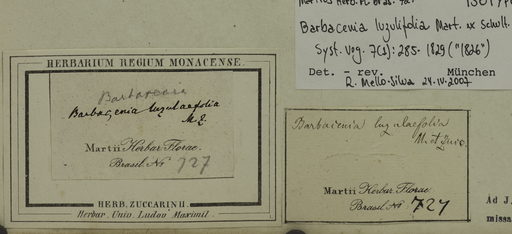 Martius Herb. Fl. Bras.
Barbacenia luzulifolia Mart. ex Schult.
Syst. Veg. 7(1): 285. 1829 ("1826")
Det. - rev. München
R. Mello-Silva 24.IV.2007
HERBARIUM REGIUM MONACENSE.
Barbacenia
Barbacenia luzulaefolia
M. Z.
Martii Herbar. Florae
Brasil. No 727
HERB. ZUCCARINII.
Herbar. Univ. Ludov. Maximil.
Barbacenia luzulaefolia
M. et Zucc.
Martii Herbar. Florae
Brasil. No 727
Ad J.
missa